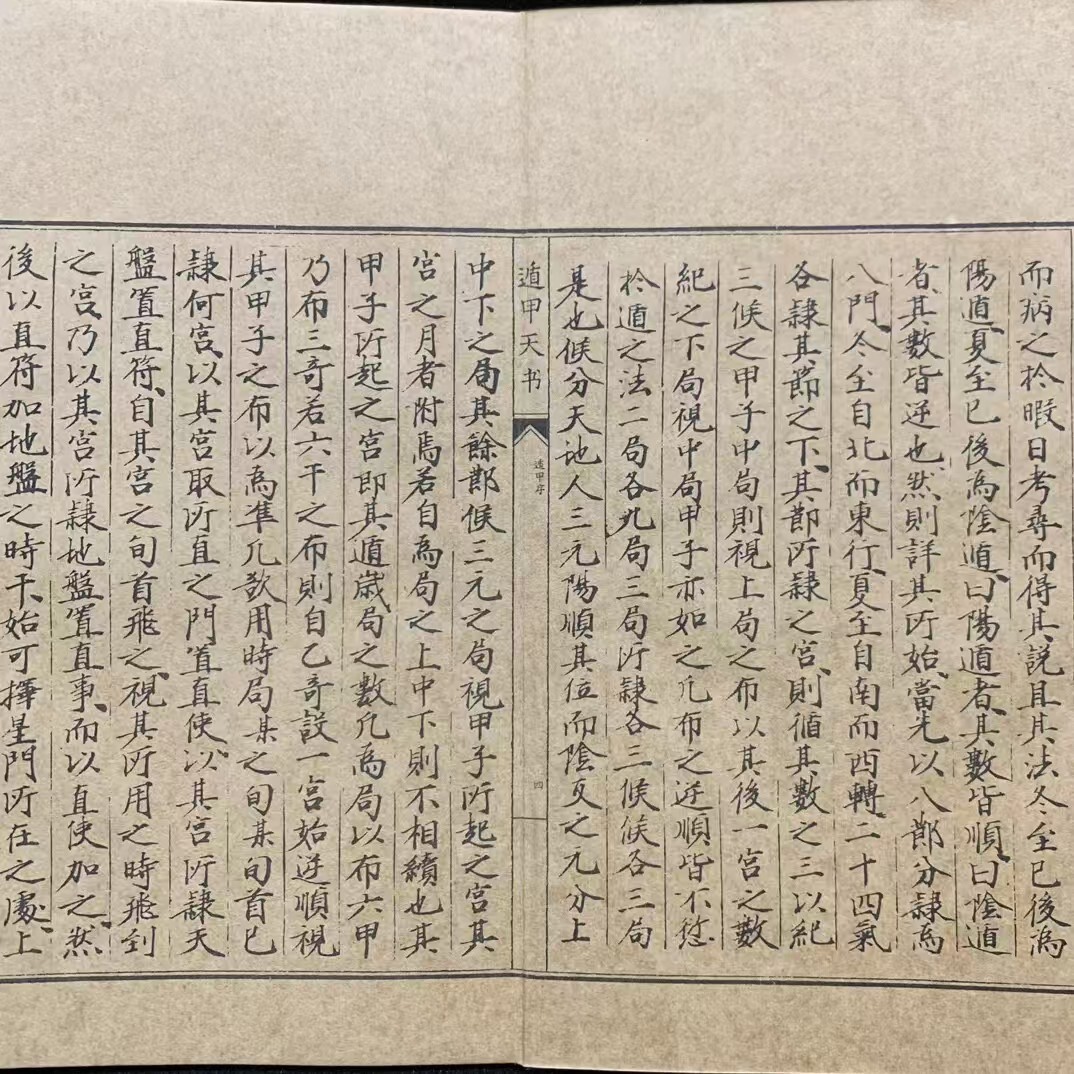 而病之於暇日考尋而得其説且其法冬至已後為
陽遁夏至已後為陰遁曰陽遁者其數皆順曰陰遁
者其數皆逆也然則詳其所始當先以八節分隷為
八門冬至自北而東行夏至自南而西轉二十四氣
各隷其節之下其節所隷之宮則循其數之三以紀
三候之甲子中局則視上局之布以其後一宮之數
紀之下局視中局甲子亦如之凡布之逆順皆不愆
於遁之法二局各九局三局所隷各三候候各三局
是也候分天地人三元陽順其位而陰反之元分上
遁甲天书
遁甲序
四
中下之局其餘節候三元之局視甲子所起之宮其
宮之月者附焉若自為局之上中下則不相續也其
甲子所起之宮即其遁歲局之數凡為局以布六甲
乃布三奇若六干之布則自乙奇設一宮始逆順視
其甲子之布以為準凡欲用時局某之旬某旬首已
隷何宮以其宮取所直之門置直使以其宮所隷天
盤置直符自其宮之旬首飛之視其所用之時飛到
之宮乃以其宮所隷地盤置直事而以直使加之然
後以直符加地盤之時干始可擇星門所在之處上